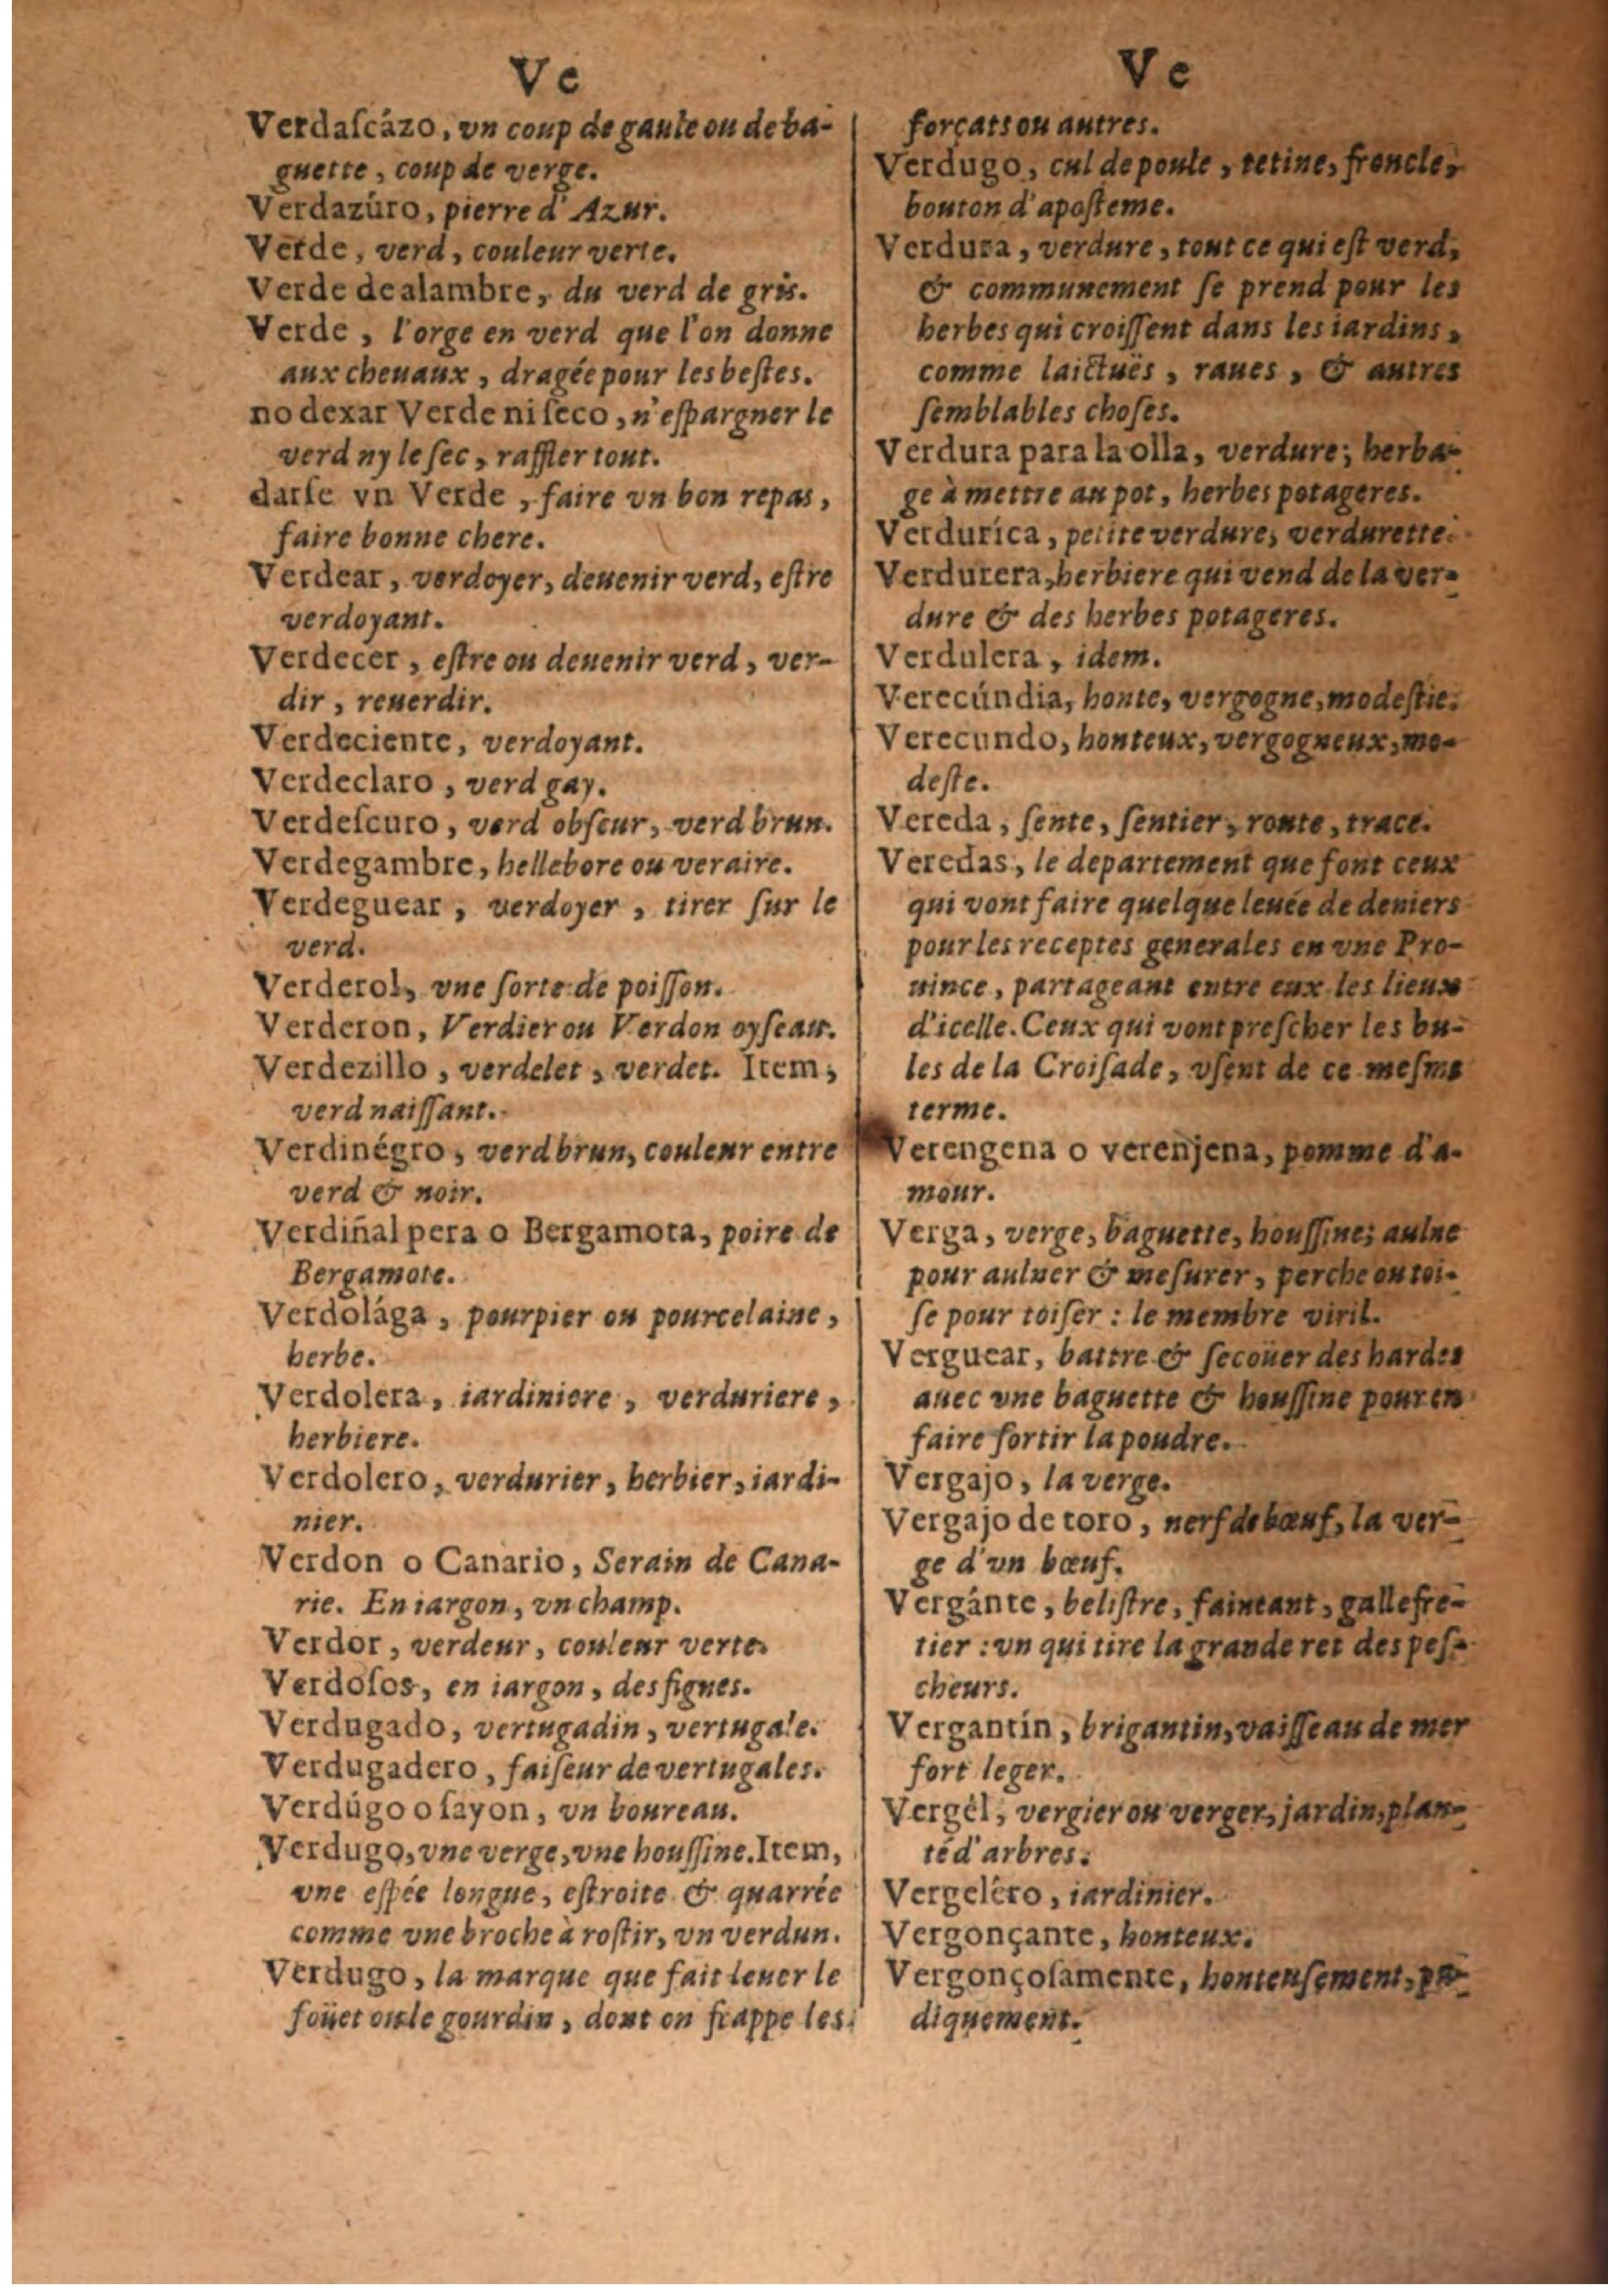 Ve
Verdaſcázo, vn coup de gaule ou de ba-
guette, coup de verge.
Verdazúro, pierre d'Azur.
Verde, verd, couleur verte.
Verde de alambre, du verd de gris.
Verde, l'orge en verd que l'on donne
aux cheuaux, dragée pour les beſtes.
no dexar Verde ni ſeco, n'eſpargner le
verd ny le ſec, raffler tout.
darſe vn Verde, faire vn bon repas,
faire bonne chere.
Verdear, verdoyer, deuenir verd, eſtre
verdoyant.
Verdecer, eſtre ou deuenir verd, ver-
dir, reuerdir.
Verdeciente, verdoyant.
Verdeclaro, verd gay.
Verdeſcuro, verd obſcur, verd brun.
Verdegambre, hellebore ou veraire.
Verdeguear, verdoyer, tirer ſur le
verd.
Verderol, vne ſorte de poiſſon.
Verderon, Verdier ou Verdon oyſeau.
Verdezillo, verdelet, verdet. Item,
verd naiſſant.
Verdinégro, verd brun, couleur entre
verd & noir.
Verdiñal pera o Bergamota, poire de
Bergamote.
Verdolága, pourpier ou pourcelaine,
herbe.
Verdolera, iardiniere, verduriere,
herbiere.
Verdolero, verdurier, herbier, iardi-
nier.
Verdon o Canario, Serain de Cana-
rie. En iargon, vn champ.
Verdor, verdeur, couleur verte.
Verdoſos, en iargon, des figues.
Verdugado, vertugadin, vertugale.
Verdugadero, faiſeur de vertugales.
Verdúgo o ſayon, vn boureau.
Verdugo, vne verge, vne houſſine. Item,
vne eſpée longue, eſtroite & quarrée
comme vne broche à roſtir, vn verdun.
Verdugo, la marque que fait leuer le
foüet ou le gourdin, dont on frappe les
Ve
forçats ou autres.
Verdugo, cul de poule, tetine, froncle,
bouton d'apoſteme.
Verdura, verdure, tout ce qui eſt verd,
& communement ſe prend pour les
herbes qui croiſſent dans les iardins,
comme laictuës, raues, & autres
ſemblables choſes.
Verdura para la olla, verdure, herba-
ge à mettre au pot, herbes potageres.
Verduríca, petite verdure, verdurette.
Verdurera, herbiere qui vend de la ver-
dure & des herbes potageres.
Verdulera, idem.
Verecúndia, honte, vergogne, modeſtie.
Verecundo, honteux, vergogneux, mo-
deſte.
Vereda, ſente, ſentier, route, trace.
Veredas, le departement que font ceux
qui vont faire quelque leuée de deniers
pour les receptes generales en vne Pro-
uince, partageant entre eux les lieux
d'icelle. Ceux qui vont preſcher les bu-
les de la Croiſade, vſent de ce meſme
terme.
Verengena o verenjena, pomme d'a-
mour.
Verga, verge, baguette, houſſine; aulne
pour aulner & meſurer, perche ou toi-
ſe pour toiſer : le membre viril.
Verguear, battre & ſecoüer des hardes
auec vne baguette & houſſine pour en
faire ſortir la poudre.
Vergajo, la verge.
Vergajo de toro, nerf de bœuf, la ver-
ge d'vn bœuf.
Vergánte, beliſtre, faineant, gallefre-
tier : vn qui tire la grande ret des peſ-
cheurs.
Vergantín, brigantin, vaiſſeau de mer
fort leger.
Vergél, vergier ou verger, jardin, plan-
té d'arbres.
Vergeléro, iardinier.
Vergonçante, honteux.
Vergonçoſamente, honteuſement, pu-
diquement.